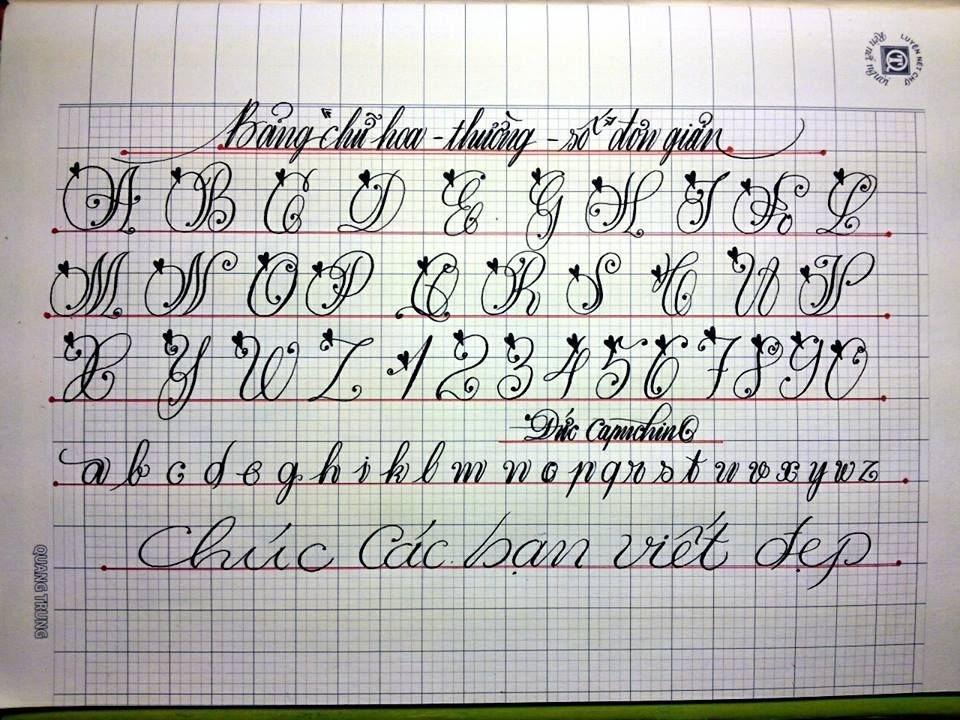 LUYỆN NÉT CHỮ
Rèn nết người
Bảng chữ hoa - thường - số đơn giản
A B C D E G H I K L
M N O P Q R S T U V
X Y W Z 1 2 3 4 5 6 7 8 9 0
Đức Capuchino
a b c d e g h i k l m n o p q r s t u v x y w z
Chúc Các bạn viết đẹp
QUANG TRUNG